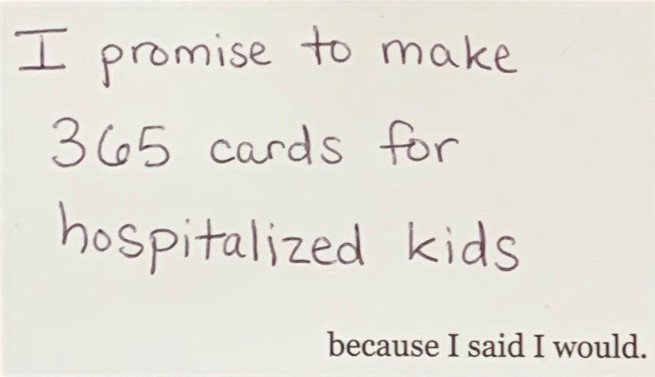 I promise to make
365 cards for
hospitalized kids
because I said I would.